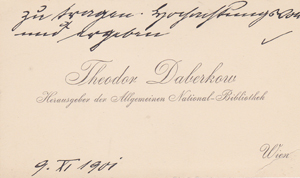 zu tragen. Hochachtungsvoll
und ergeben
Theodor Daberkow
Herausgeber der Allgemeinen National-Bibliothek
Wien
9. XI 1901